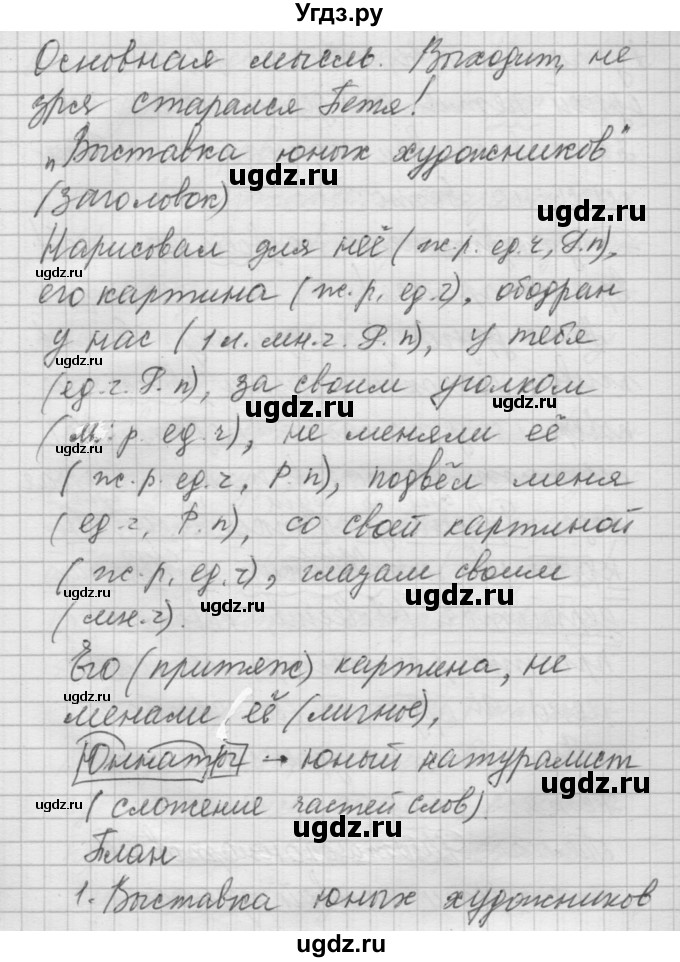 Угдз.ру
Основная мысль. Выходит, не
зря старался Петя!
„Выставка юных художников"
ugdz.ru ugdz.ru
(заголовок)
ugdz.ru
Нарисовал для неё (ж.р. ед.ч, Р.п),
ugdz.ru
его картина (ж.р, ед.ч), ободран
у нас (1 л. мн.ч. Р.п), у тебя
ugdz.ru ugdz.ru
(ед.ч. Р.п), за своим уголком
ugdz.ru
(м.р. ед.ч), не меняли её
(ж.р. ед.ч, Р.п), подвёл меня
ugdz.ru
(ед.ч, Р.п), со своей картиной
(ж.р, ед.ч), глазам своим
ugdz.ru ugdz.ru
(мн.ч).
Его (притяж) картина, не
ugdz.ru
менали (её (личное),
Юннаты → юный натуралист
ugdz.ru
(сложение частей слов).
ugdz.ru
План
1. Выставка юных художников
ugdz.ru